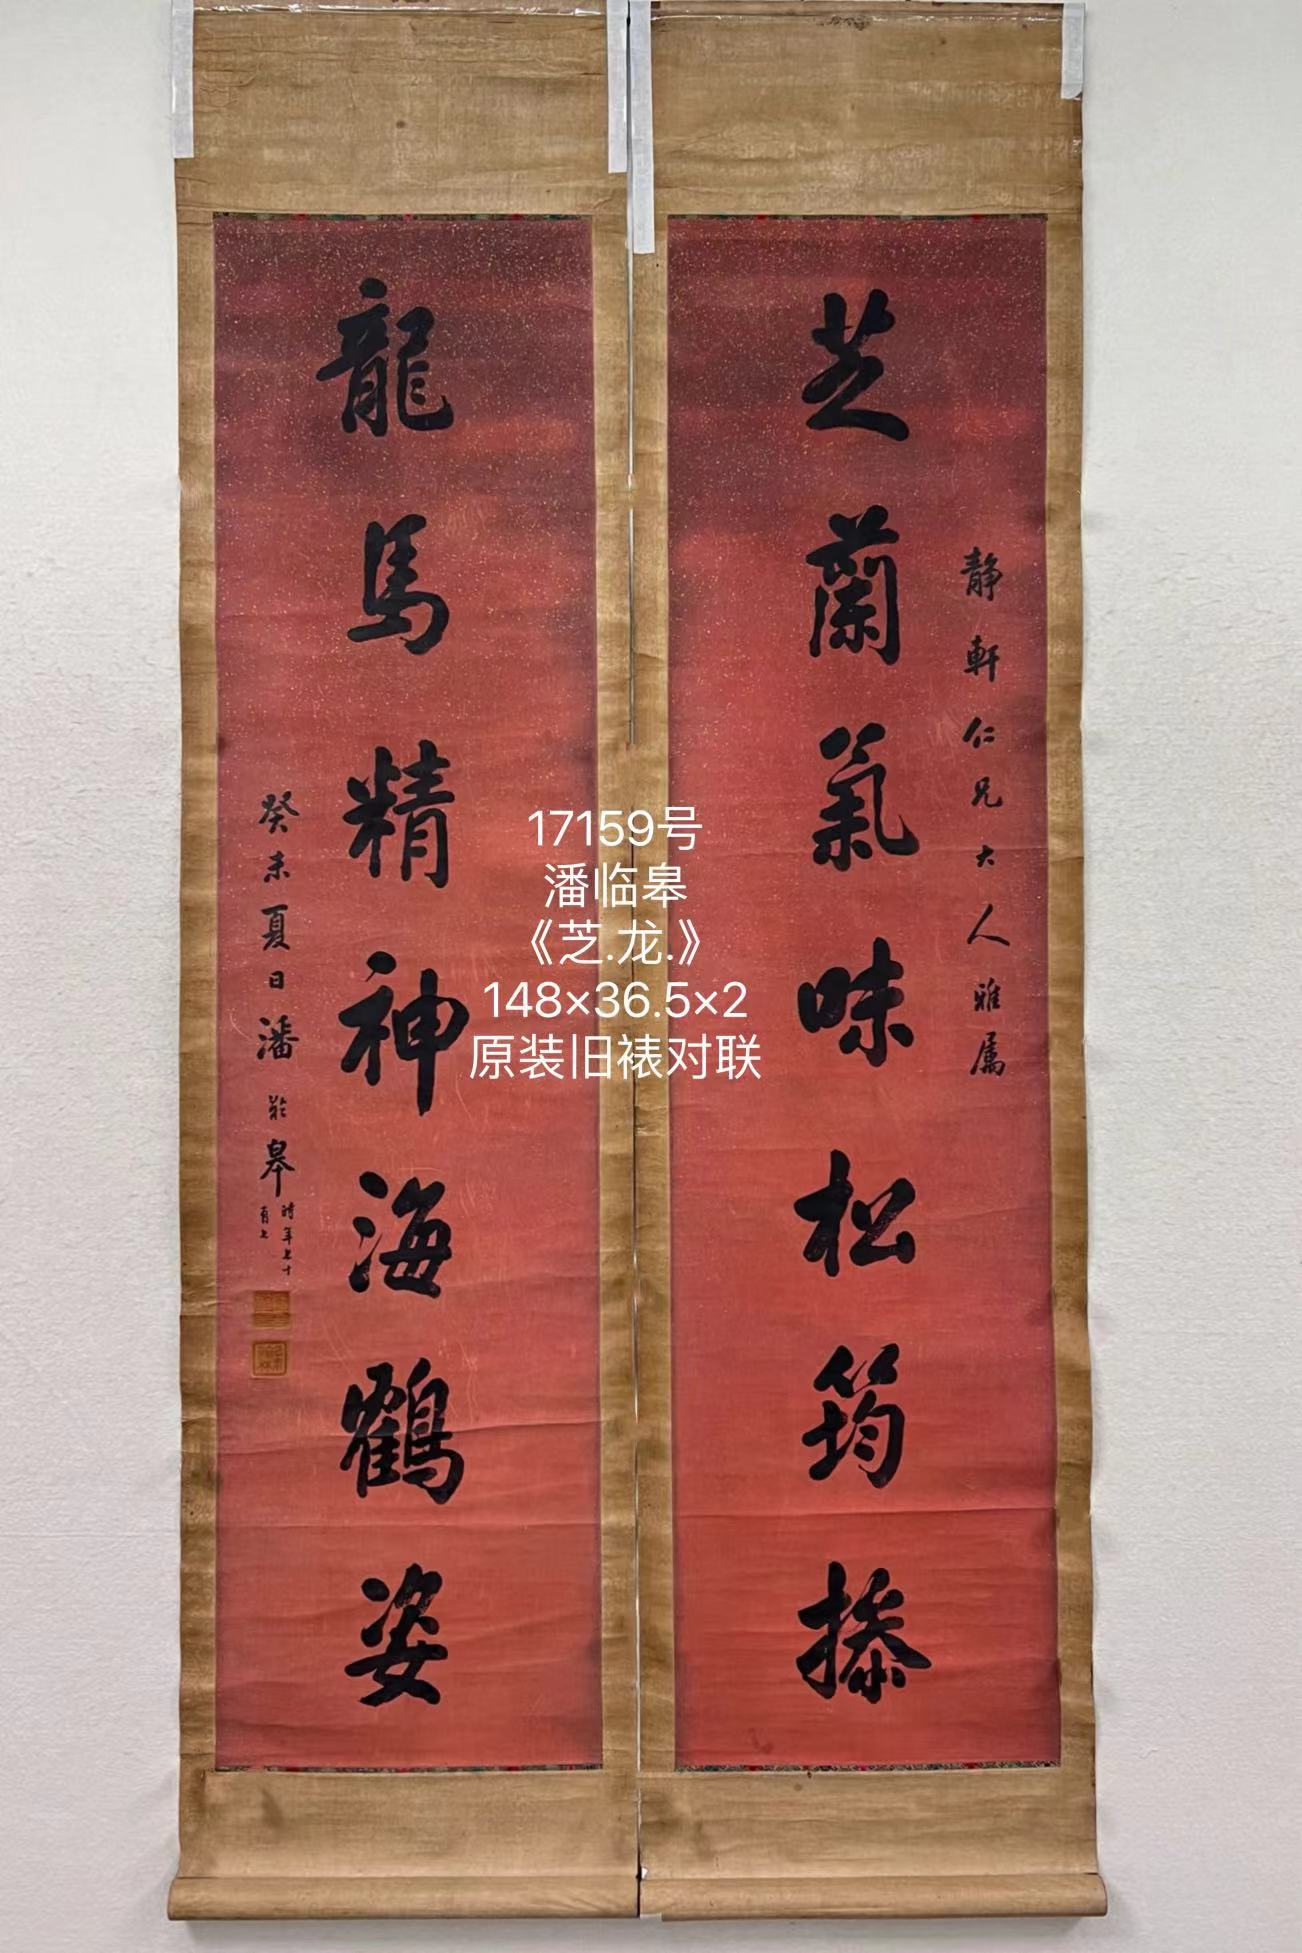 芝蘭氣味松筠操
靜軒仁兄大人雅属
龍馬精神海鶴姿
癸未夏日潘齡皋
時年七十
有七
17159号
潘临皋
《芝.龙.》
148×36.5×2
原装旧裱对联